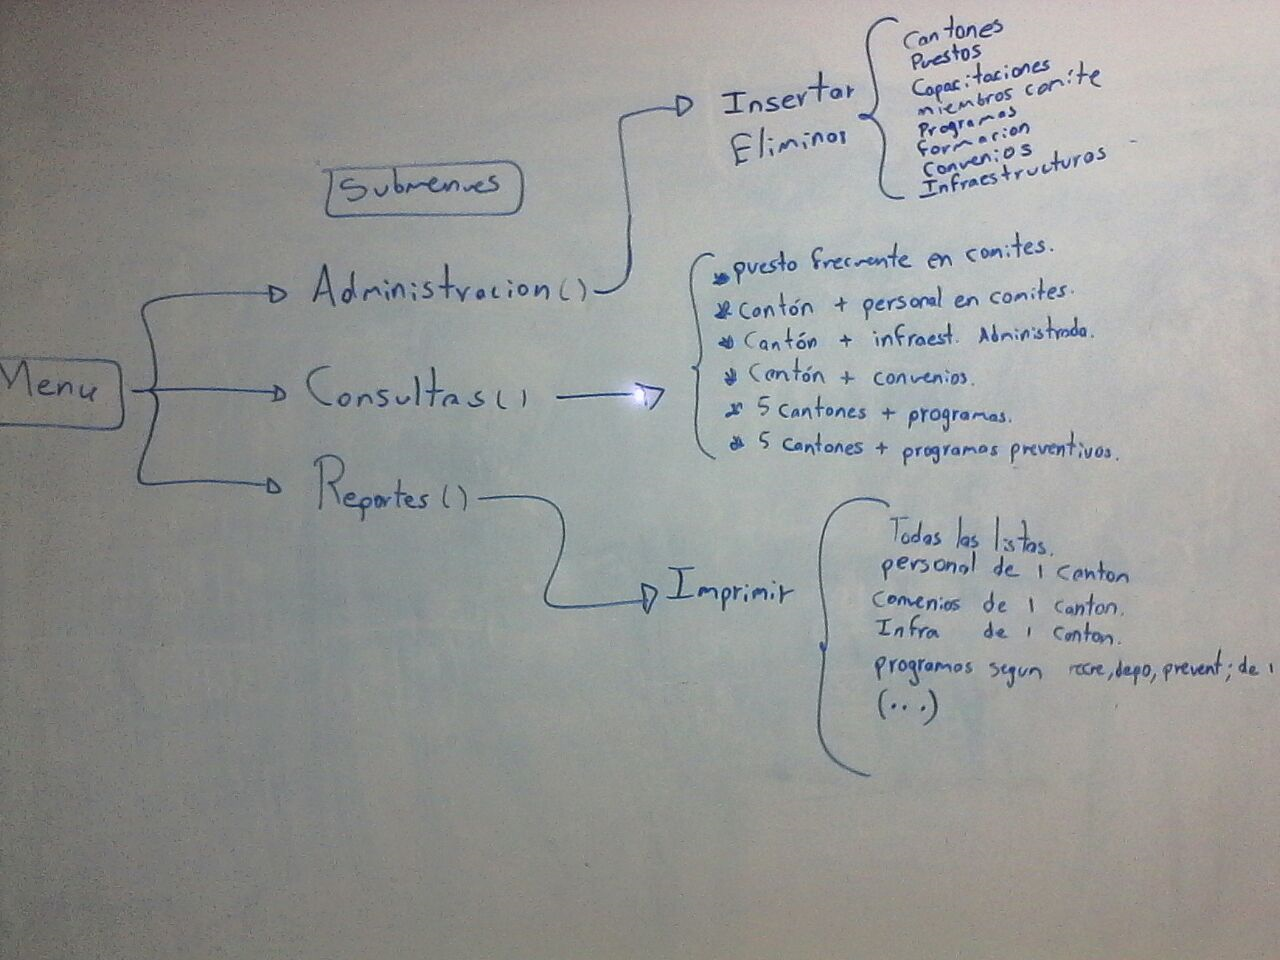 Menu
Submenues
Administracion()
Consultas()
Reportes()
Insertar
Eliminar
Cantones
Puestos
Capacitaciones
miembros comite
Programas
formacion
Convenios
Infraestructuras
* puesto frecuente en comites.
* cantón + personal en comites.
* Cantón + infraest. Administrada.
* Cantón + convenios.
* 5 cantones + programas.
* 5 cantones + programas preventivos.
Imprimir
Todas las listas.
personal de 1 canton
convenios de 1 canton.
Infra de 1 canton.
programas segun recre, depo, prevent; de 1
(...)